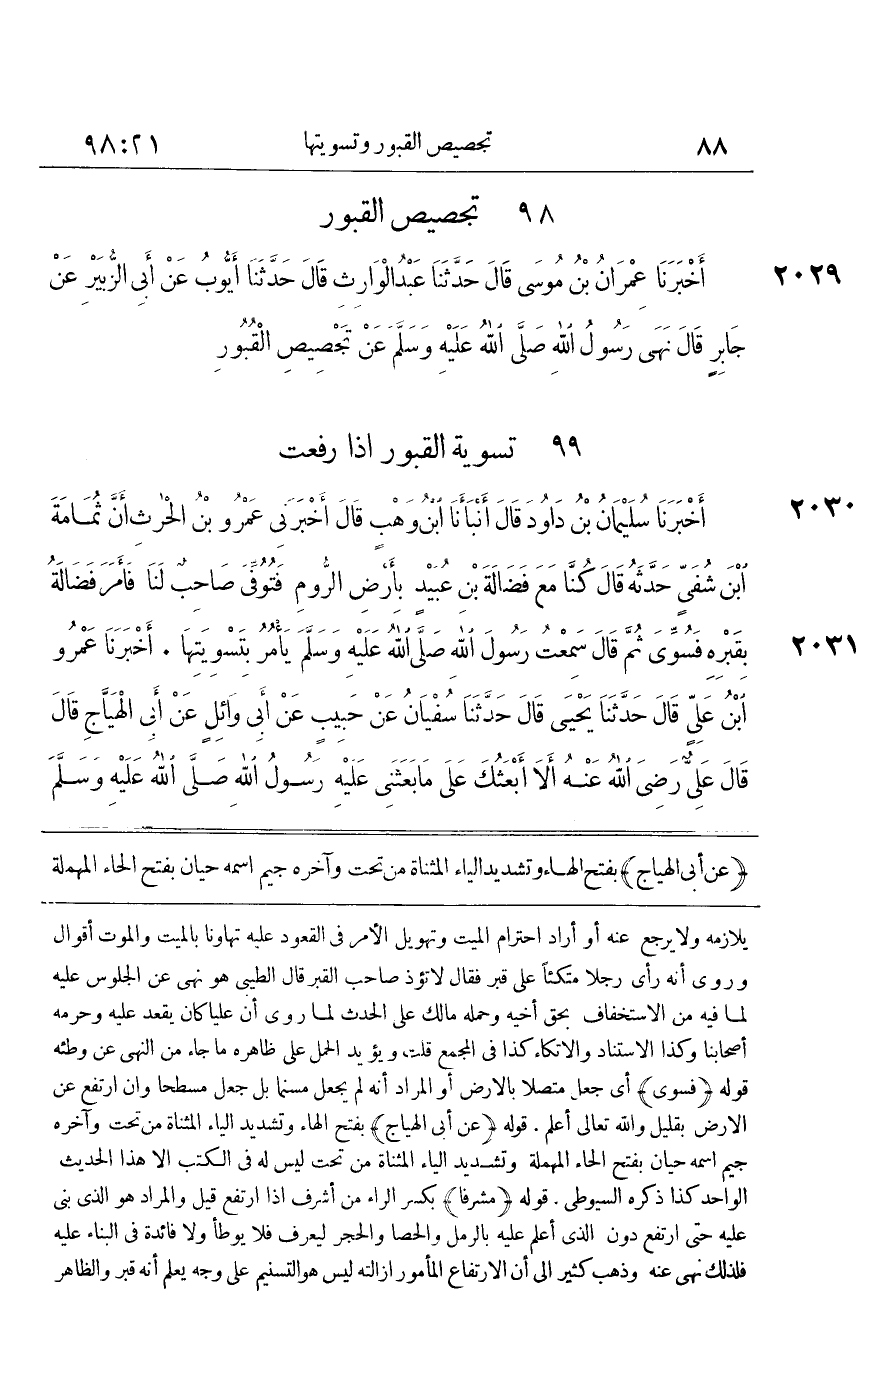 ٨٨ تجصيص القبور وتسويتها ٢١:٩٨
٩٨ تجصيص القبور
٢٠٢٩ أَخْبَرَنَا عِمْرَانُ بْنُ مُوسَى قَالَ حَدَّثَنَا عَبْدُالْوَارِثِ قَالَ حَدَّثَنَا أَيُّوبُ عَنْ أَبِي الزُّبَيْرِ عَنْ
جَابِرٍ قَالَ نَهَى رَسُولُ اللّٰهِ صَلَّى اللّٰهُ عَلَيْهِ وَسَلَّمَ عَنْ تَجْصِيصِ الْقُبُورِ
٩٩ تسوية القبور اذا رفعت
٢٠٣٠ أَخْبَرَنَا سُلَيْمَانُ بْنُ دَاوُدَ قَالَ أَنْبَأَنَا ابْنُ وَهْبٍ قَالَ أَخْبَرَنِي عَمْرُو بْنُ الْحٰرِثِ أَنَّ ثُمَامَةَ
ابْنَ شُفَيٍّ حَدَّثَهُ قَالَ كُنَّا مَعَ فَضَالَةَ بْنِ عُبَيْدٍ بِأَرْضِ الرُّومِ فَتُوُفِّيَ صَاحِبٌ لَنَا فَأَمَرَ فَضَالَةُ
٢٠٣١ بِقَبْرِهِ فَسُوِّيَ ثُمَّ قَالَ سَمِعْتُ رَسُولَ اللّٰهِ صَلَّى اللّٰهُ عَلَيْهِ وَسَلَّمَ يَأْمُرُ بِتَسْوِيَتِهَا . أَخْبَرَنَا عَمْرُو
ابْنُ عَلِيٍّ قَالَ حَدَّثَنَا يَحْيَى قَالَ حَدَّثَنَا سُفْيَانُ عَنْ حَبِيبٍ عَنْ أَبِي وَائِلٍ عَنْ أَبِي الْهَيَّاجِ قَالَ
قَالَ عَلِيٌّ رَضِيَ اللّٰهُ عَنْهُ أَلَا أَبْعَثُكَ عَلَى مَا بَعَثَنِي عَلَيْهِ رَسُولُ اللّٰهِ صَلَّى اللّٰهُ عَلَيْهِ وَسَلَّمَ
﴿عن أبى الهياج﴾ بفتح الهاء وتشديد الياء المثناة من تحت وآخره جيم اسمه حيان بفتح الحاء المهملة
يلازمه ولا يرجع عنه أو أراد احترام الميت وتهويل الأمر فى القعود عليه تهاونا بالميت والموت أقوال
وروى أنه رأى رجلا متكئاً على قبر فقال لاتؤذ صاحب القبر قال الطيبى هو نهى عن الجلوس عليه
لما فيه من الاستخفاف بحق أخيه وحمله مالك على الحدث لما روى أن عليا كان يقعد عليه وحرمه
أصحابنا وكذا الاستناد والاتكاء كذا فى المجمع قلت ويؤيد الحمل على ظاهره ما جاء من النهى عن وطئه
قوله ﴿فسوى﴾ أى جعل متصلا بالارض أو المراد أنه لم يجعل مسنما بل جعل مسطحا وان ارتفع عن
الارض بقليل والله تعالى أعلم . قوله ﴿عن أبى الهياج﴾ بفتح الهاء وتشديد الياء المثناة من تحت وآخره
جيم اسمه حيان بفتح الحاء المهملة وتشديد الياء المثناة من تحت ليس له فى الكتب الا هذا الحديث
الواحد كذا ذكره السيوطى . قوله ﴿مشرفا﴾ بكسر الراء من أشرف اذا ارتفع قيل والمراد هو الذى بنى
عليه حتى ارتفع دون الذى أعلم عليه بالرمل والحصا والحجر ليعرف فلا يوطأ ولا فائدة فى البناء عليه
فلذلك نهى عنه وذهب كثير الى أن الارتفاع المأمور ازالته ليس هو التسنيم على وجه يعلم أنه قبر والظاهر